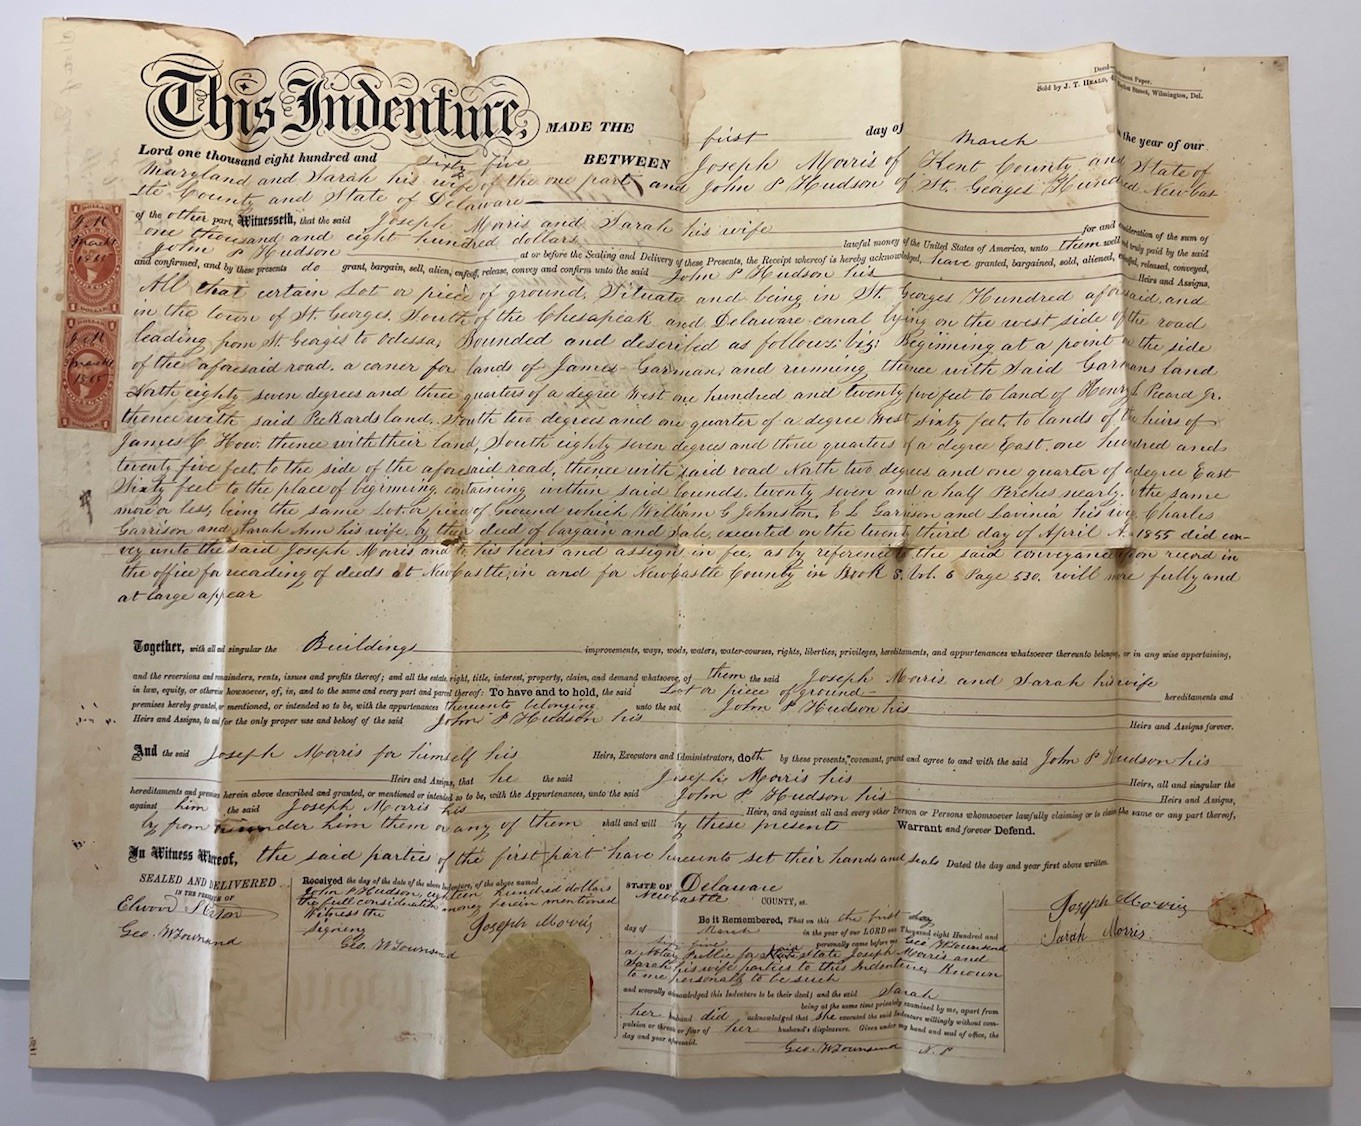 Deed
Sold by J. T. HEALD,
Street, Wilmington, Del.
This Indenture, MADE THE first day of March in the year of our
Lord one thousand eight hundred and sixty five BETWEEN Joseph Morris of Kent County and State of
Maryland and Sarah his wife of the one part, and John P Hudson of St. Georges Hundred New Cas-
tle County and State of Delaware
of the other part, Witnesseth, that the said Joseph Morris and Sarah his wife for and consideration of the sum of
one thousand and eight hundred dollars lawful money of the United States of America, unto them well truly paid by the said
John P Hudson at or before the Sealing and Delivery of these Presents, the Receipt whereof is hereby acknowledged, have granted, bargained, sold, aliened, enfeoffed, released, conveyed,
and confirmed, and by these presents do grant, bargain, sell, alien, enfeoff, release, convey and confirm unto the said John P Hudson his Heirs and Assigns,
All that certain Lot or piece of ground, Situate and being in St. Georges Hundred aforesaid and
in the town of St. Georges, South of the Chesapeak and Delaware canal lying on the west side of the road
leading from St Georges to Odessa, Bounded and described as follows: biz: Beginning at a point on the side
of the aforesaid road, a corner for lands of James Garman, and running thence with Said Garmans land
North eighty seven degrees and three quarters of a degree West one hundred and twenty five feet to land of Henry Jr.
thence with said Peckards land, South two degrees and one quarter of a degree West sixty feet, to lands of the heirs of
James C How, thence with their land, South eighty seven degrees and three quarters of a degree East, one hundred and
twenty five feet, to the side of the aforesaid road, thence with said road North two degrees and one quarter of a degree East
Sixty feet to the place of beginning, containing within said bounds, twenty seven and a half Perches nearly, the same
more or less, being the same Lot or piece of Ground which William G Johnston, E L Garrison and Lavinia his wife, Charles
Garrison and Sarah Ann his wife, by their deed of bargain and sale, executed on the twenty third day of April A. 1855 did con-
vey unto the said Joseph Morris and to his heirs and assigns in fee, as by reference to the said conveyance upon record in
the office for recording of deeds at New Castle, in and for New Castle County in Book S. Vol. 6 Page 530. will more fully and
at large appear
Together, with all and singular the Buildings improvements, ways, wods, waters, water-courses, rights, liberties, privileges, hereditaments, and appurtenances whatsoever thereunto belonging, or in any wise appertaining,
and the reversions and remainders, rents, issues and profits thereof; and all the estate, right, title, interest, property, claim, and demand whatsoever, of them the said Joseph Morris and Sarah his wife
in law, equity, or otherwise howsoever, of, in, and to the same and every part and parcel thereof: To have and to hold, the said Lot or piece of ground hereditaments and
premises hereby granted, or mentioned, or intended so to be, with the appurtenances thereunto belonging unto the said John P Hudson his
Heirs and Assigns, to and for the only proper use and behoof of the said John P Hudson his Heirs and Assigns forever.
And the said Joseph Morris for himself his Heirs, Executors and Administrators, doth by these presents, covenant, grant and agree to and with the said John P Hudson his
Heirs and Assigns, that he the said Joseph Morris his Heirs, all and singular the
hereditaments and premises herein above described and granted, or mentioned or intended so to be, with the Appurtenances, unto the said John P Hudson his Heirs and Assigns,
against him the said Joseph Morris his Heirs, and against all and every other Person or Persons whomsoever lawfully claiming or to claim the same or any part thereof,
by from or under him them or any of them shall and will by these presents Warrant and forever Defend.
In Witness Whereof, the said parties of the first part have hereunto set their hands and seals Dated the day and year first above written.
SEALED AND DELIVERED
IN THE PRESENCE OF
Geo. W Townsend
Received the day of the date of the above Indenture, of the above named
John P Hudson eighteen hundred dollars
the full consideration money herein mentioned
Witness the
signing
Geo. W Townsend
Joseph Morris
STATE OF Delaware
New Castle COUNTY, ss.
Be it Remembered, That on this the first day
day of March in the year of our LORD one Thousand eight Hundred and
sixty five personally came before me Geo W Townsend
a Notary Public for said State Joseph Morris and
Sarah his wife parties to this Indenture, Known
to me personally to be such
and severally acknowledged this Indenture to be their deed; and the said Sarah
being at the same time privately examined by me, apart from
her husband did acknowledged that she executed the said Indenture willingly without com-
pulsion or threats or fear of her husband's displeasure. Given under my hand and seal of office, the
day and year aforesaid.
Geo. W Townsend N. P
Joseph Morris
Sarah Morris